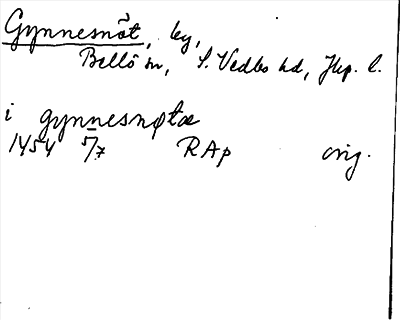 Gynnesnöt, by,
Bellö sn, S. Vedbo hd, Jkp. l.
i gynnesnøtæ
1454 5/7 RAp orig.